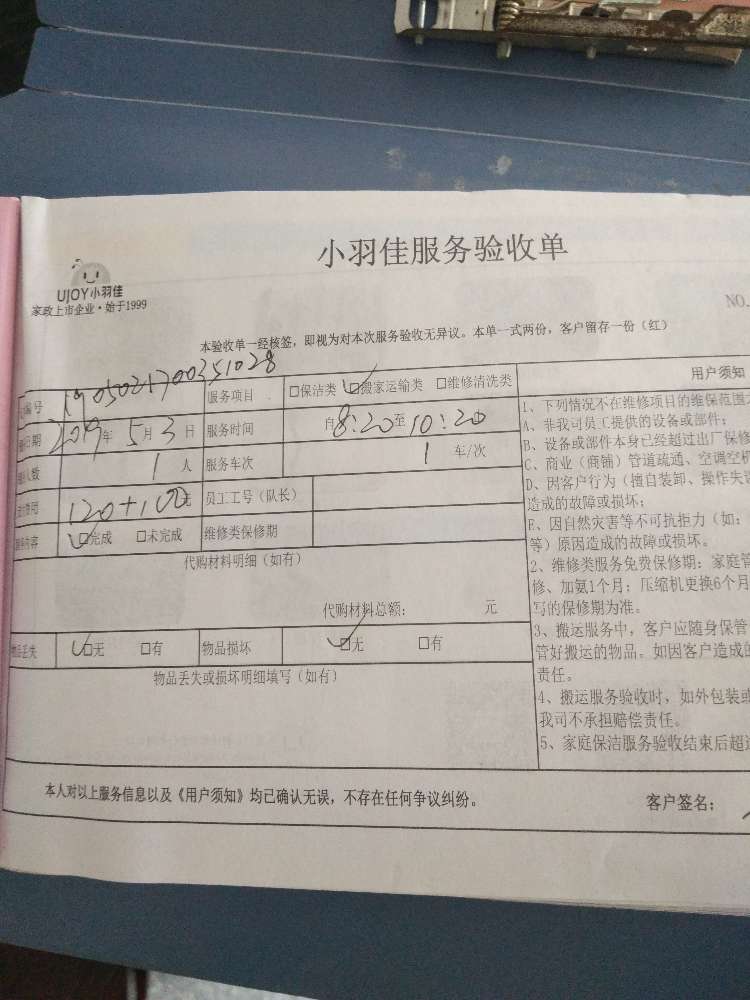 小羽佳服务验收单
UJOY小羽佳
家政上市企业·始于1999
NO.
本验收单一经核签，即视为对本次服务验收无异议。本单一式两份，客户留存一份（红）
编号 1905021700351028 服务项目 □保洁类 ☑搬家运输类 □维修清洗类
日期 2019年5月3日 服务时间 自8:20至10:20
人数 1人 服务车次 1车/次
费用 120+100元 员工工号（队长）
内容 ☑完成 □未完成 维修类保修期
代购材料明细（如有）
代购材料总额： 元
物品丢失 ☑无 □有 物品损坏 ☑无 □有
物品丢失或损坏明细填写（如有）
用户须知
1、下列情况不在维修项目的维保范围
A、非我司员工提供的设备或部件；
B、设备或部件本身已经超过出厂保修
C、商业（商铺）管道疏通、空调空
D、因客户行为（擅自装卸、操作失
造成的故障或损坏；
E、因自然灾害等不可抗拒力（如：
等）原因造成的故障或损坏。
2、维修类服务免费保修期：家庭管
修、加氨1个月；压缩机更换6个月
写的保修期为准。
3、搬运服务中，客户应随身保管
管好搬运的物品。如因客户造成的
责任。
4、搬运服务验收时，如外包装或
我司不承担赔偿责任。
5、家庭保洁服务验收结束后超
本人对以上服务信息以及《用户须知》均已确认无误，不存在任何争议纠纷。
客户签名：